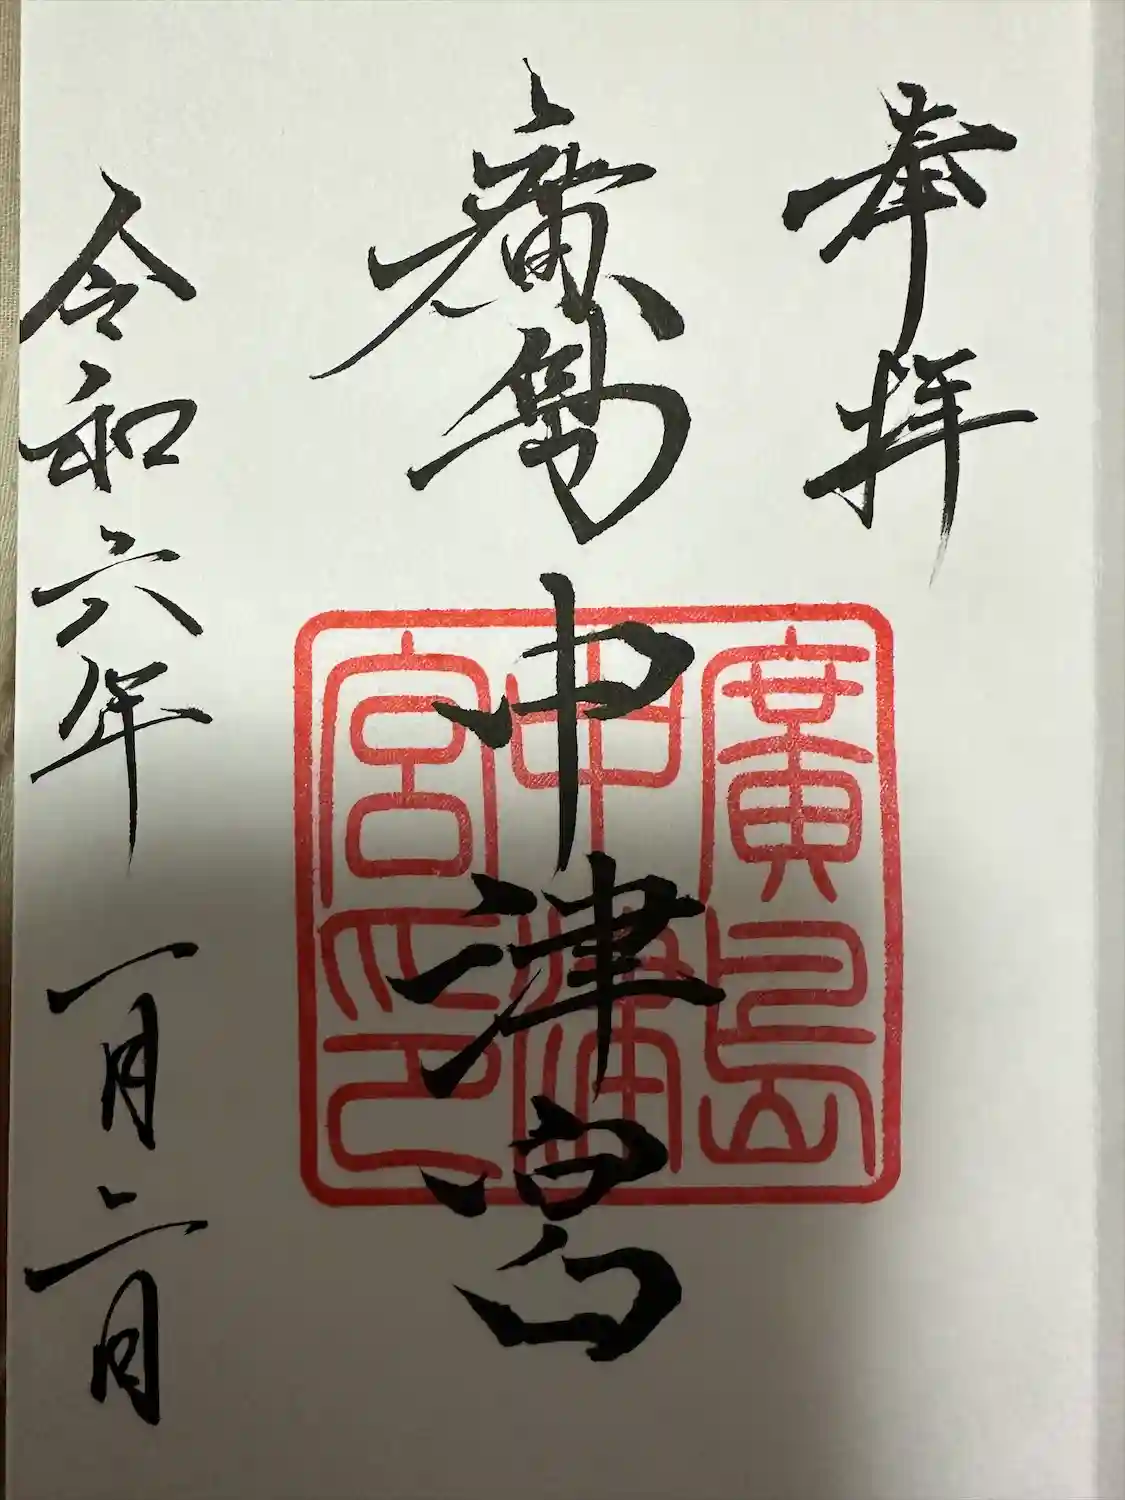 奉拝
廣島中津宮
廣島
中津
宮之印
令和六年一月二日